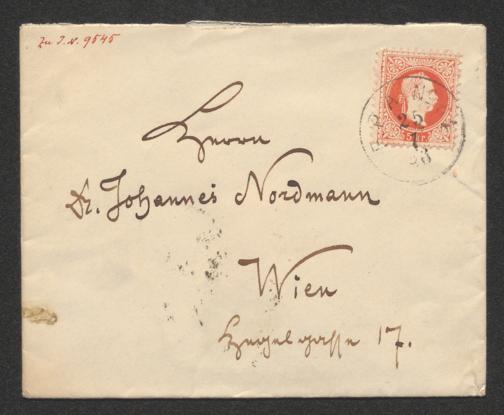 Zu I. N. 9545
5 kr.
25
1
83
Herrn
Dr. Johannes Nordmann
Wien
Hegelgasse 17.